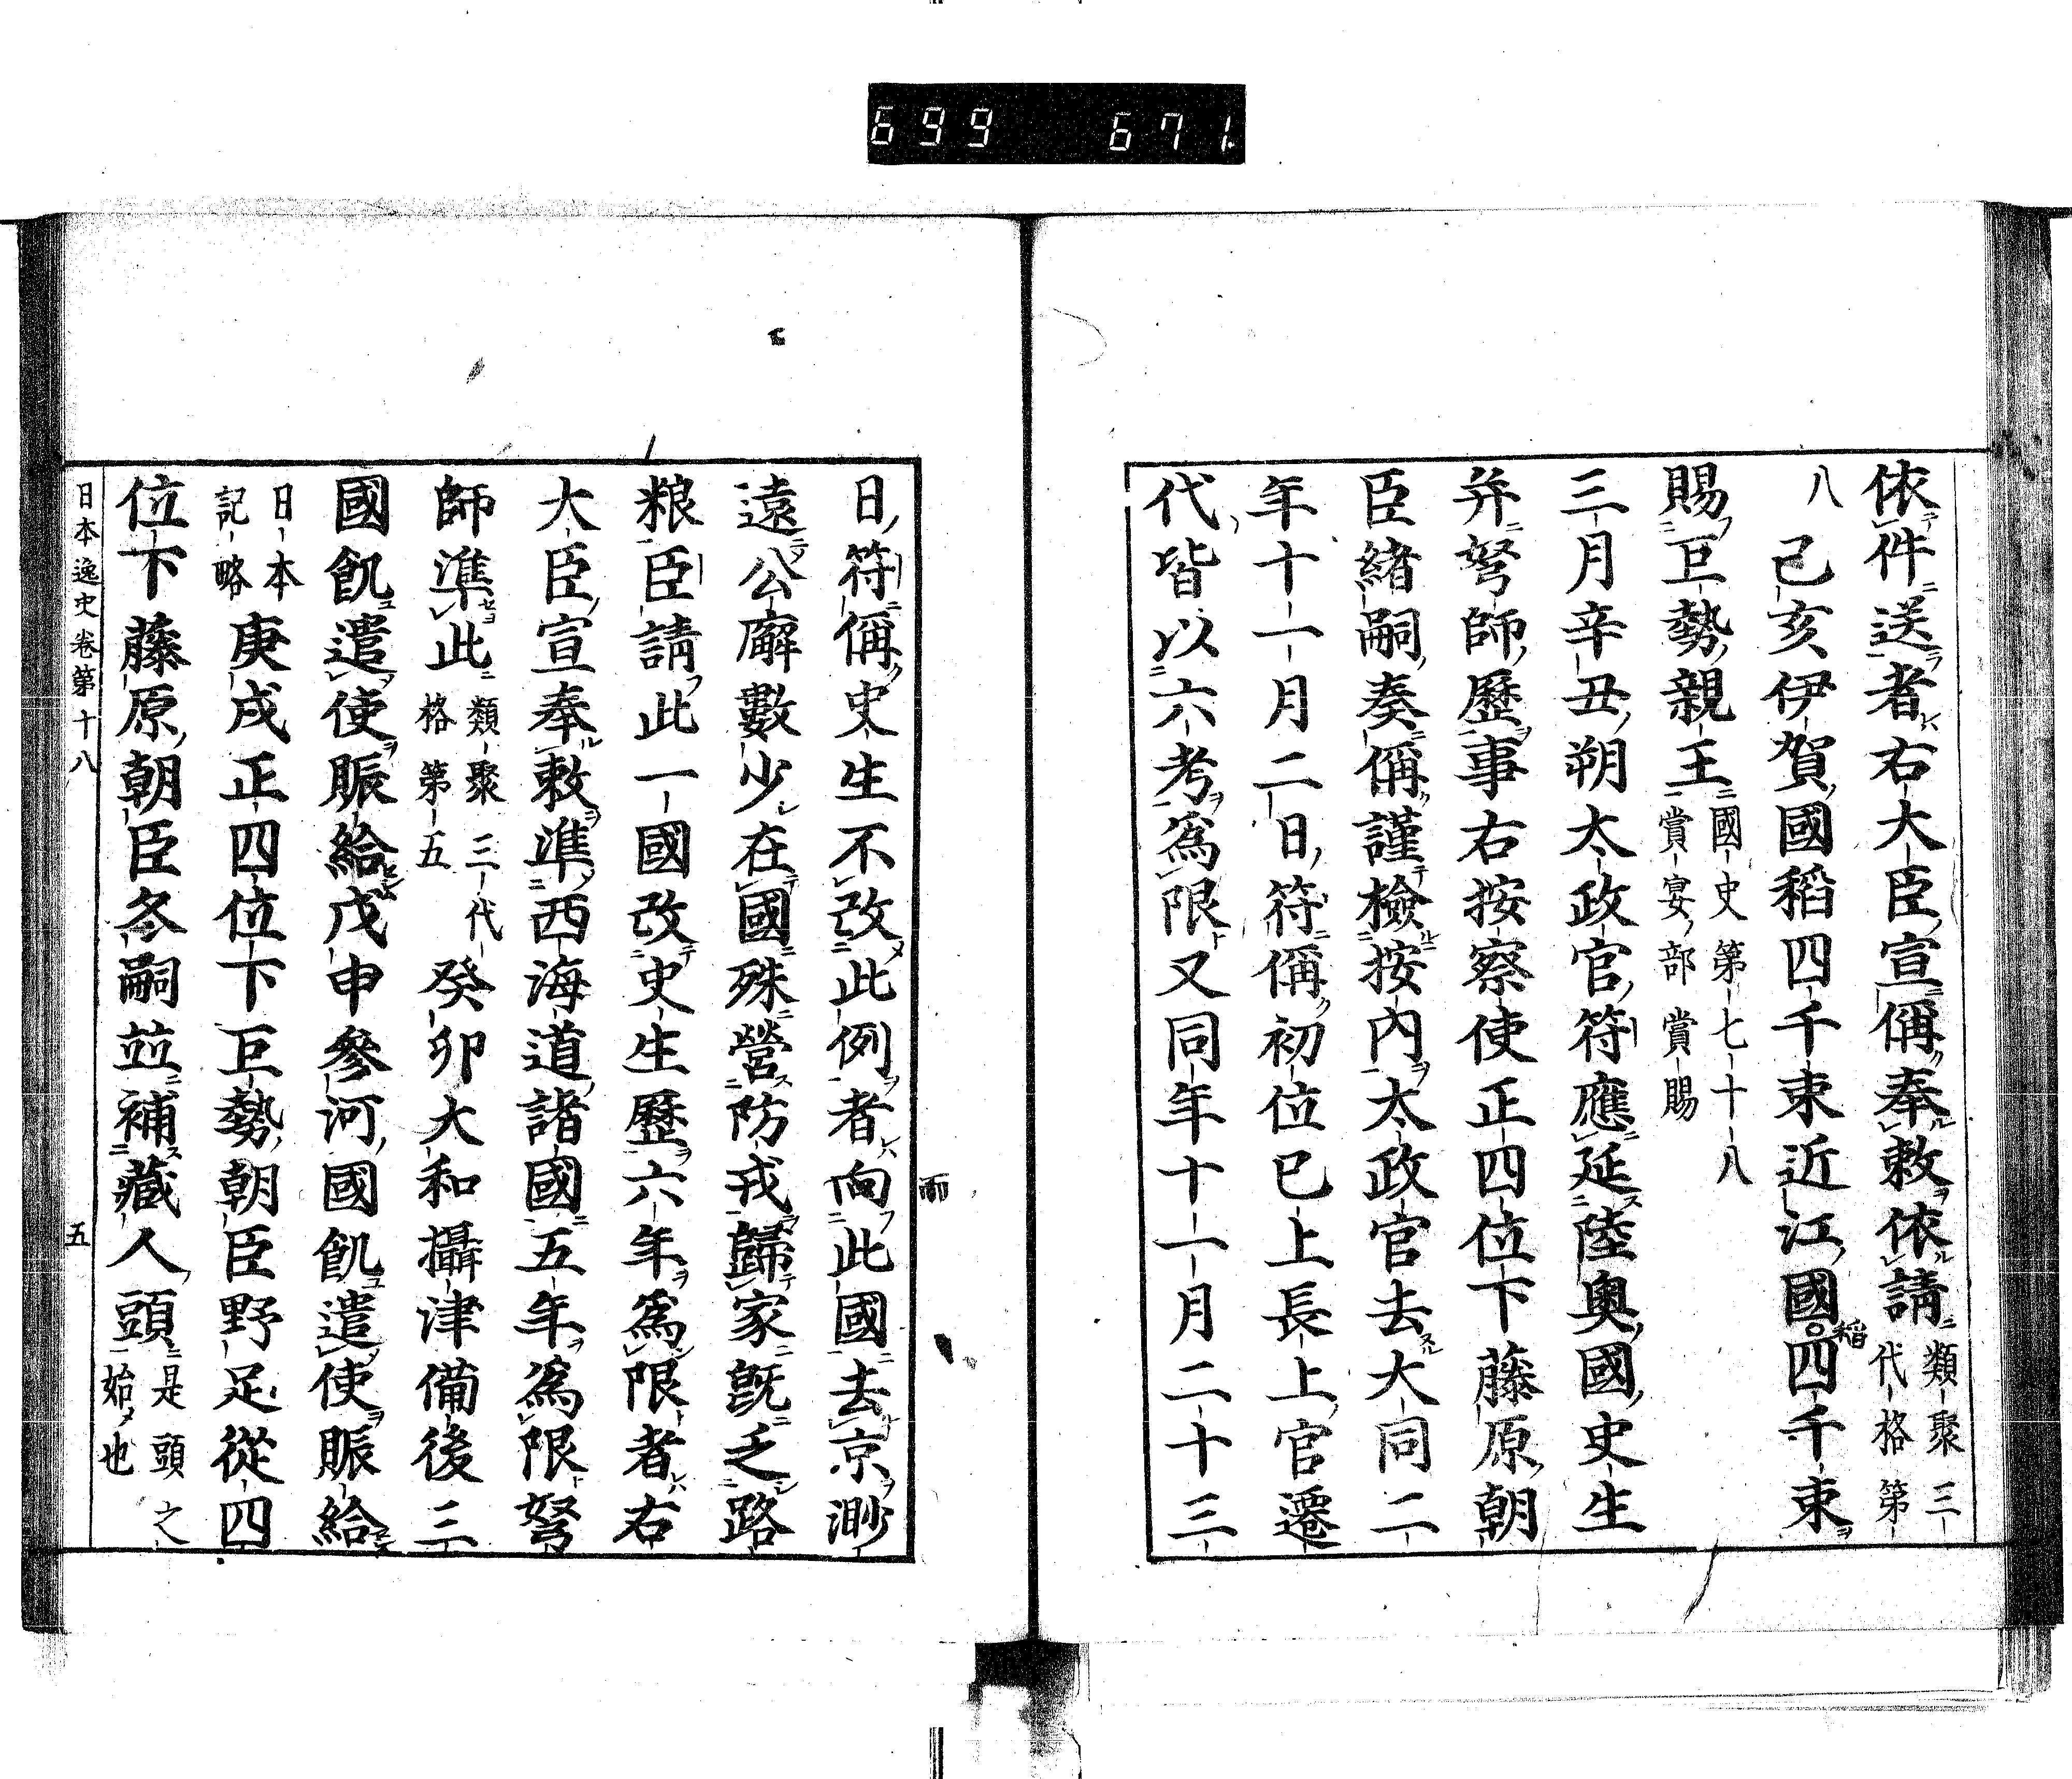 699 671
依件送者右大臣宣偁奉敕依請類聚三代格第
八己亥伊賀國稻四千束近江國稻四千束
賜巨勢親王國史第七十八賞宴部賞賜
三月辛丑朔太政官符應延陸奧國史生
并弩師歷事右按察使正四位下藤原朝
臣緒嗣奏偁謹檢按內太政官去大同二
年十一月二日符偁初位已上長上官遷
代皆以六考爲限又同年十一月二十三
日符偁史生不改此例者向此國去京渺
而
遠公廨數少在國殊營防戎歸家旣乏路
粮臣請此一國改史生歷六年爲限者右
大臣宣奉敕準西海道諸國五年爲限弩
師準此類聚三代格第五癸卯大和攝津備後三
國飢遣使賑給戊申參河國飢遣使賑給
日本記略庚戌正四位下巨勢朝臣野足從四
位下藤原朝臣冬嗣竝補藏人頭是頭之始也
日本逸史卷第十八 五